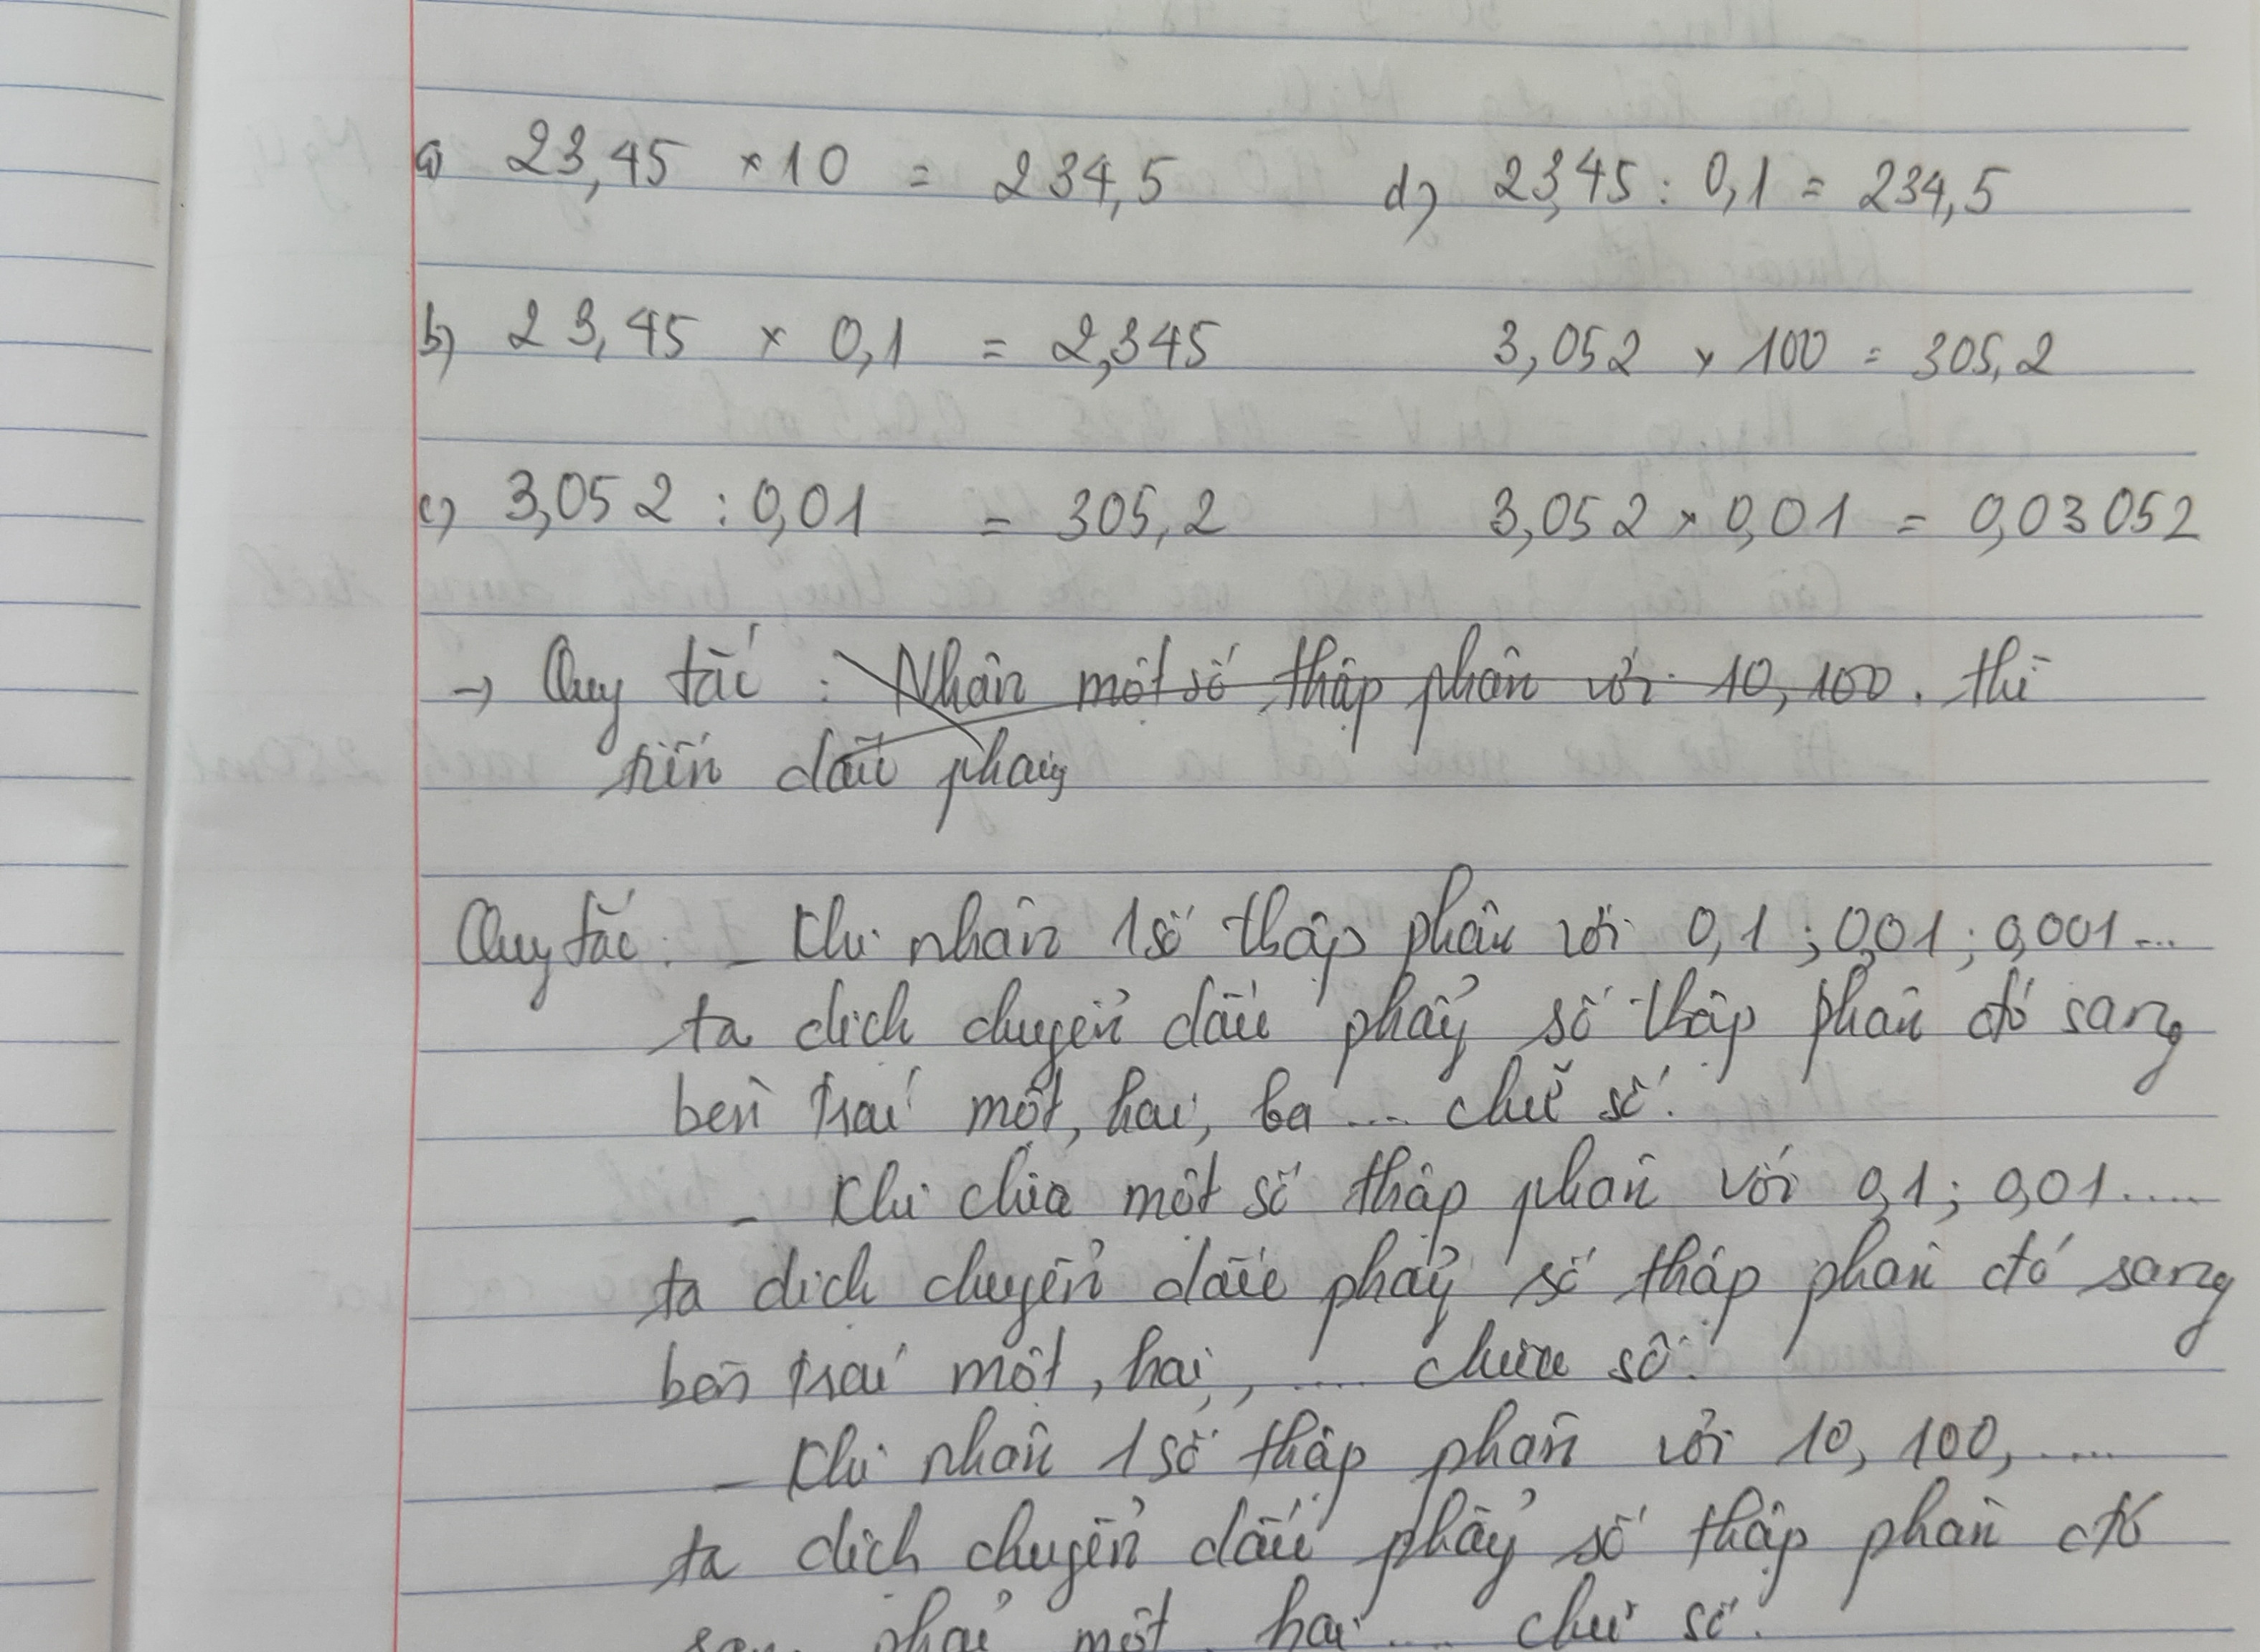 a) 23,45 × 10 = 234,5 d) 23,45 : 0,1 = 234,5
b) 23,45 × 0,1 = 2,345 3,052 × 100 = 305,2
c) 3,052 : 0,01 = 305,2 3,052 × 0,01 = 0,03052
→ Quy tắc : Nhân một số thập phân với 10, 100. thì
dấu phẩy
Quy tắc: - Khi nhân 1 số thập phân với 0,1 ; 0,01 ; 0,001...
ta dịch chuyển dấu phẩy số thập phân đó sang
bên trái một, hai, ba ... chữ số.
- Khi chia một số thập phân với 0,1 ; 0,01....
ta dịch chuyển dấu phẩy số thập phân đó sang
bên trái một, hai, .... chữ số.
- Khi nhân 1 số thập phân với 10, 100, ....
ta dịch chuyển dấu phẩy số thập phân đó
sang phải một, hai ... chữ số.